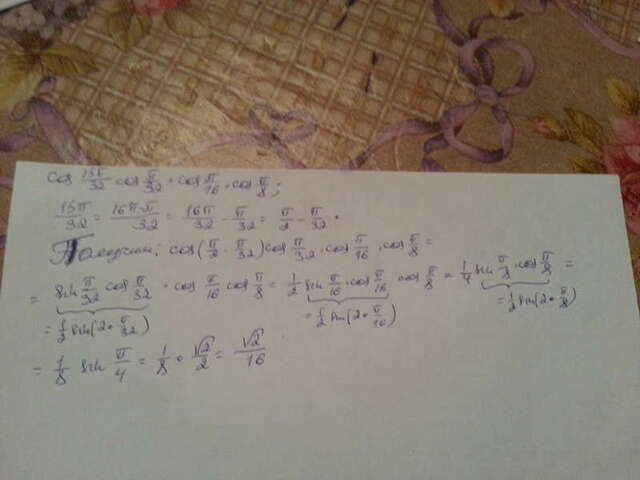 cos 15π/32 cos π/32 · cos π/16 · cos π/8;
15π/32 = 16π-π/32 = 16π/32 - π/32 = π/2 - π/32.
Получим: cos(π/2 - π/32) cos π/32 · cos π/16 · cos π/8 =
= sin π/32 cos π/32 · cos π/16 cos π/8 = 1/2 sin π/16 · cos π/16 cos π/8 = 1/4 sin π/8 · cos π/8 =
= 1/2 sin(2·π/32) = 1/2 sin(2·π/16) = 1/2 sin(2·π/8)
= 1/8 sin π/4 = 1/8 · √2/2 = √2/16